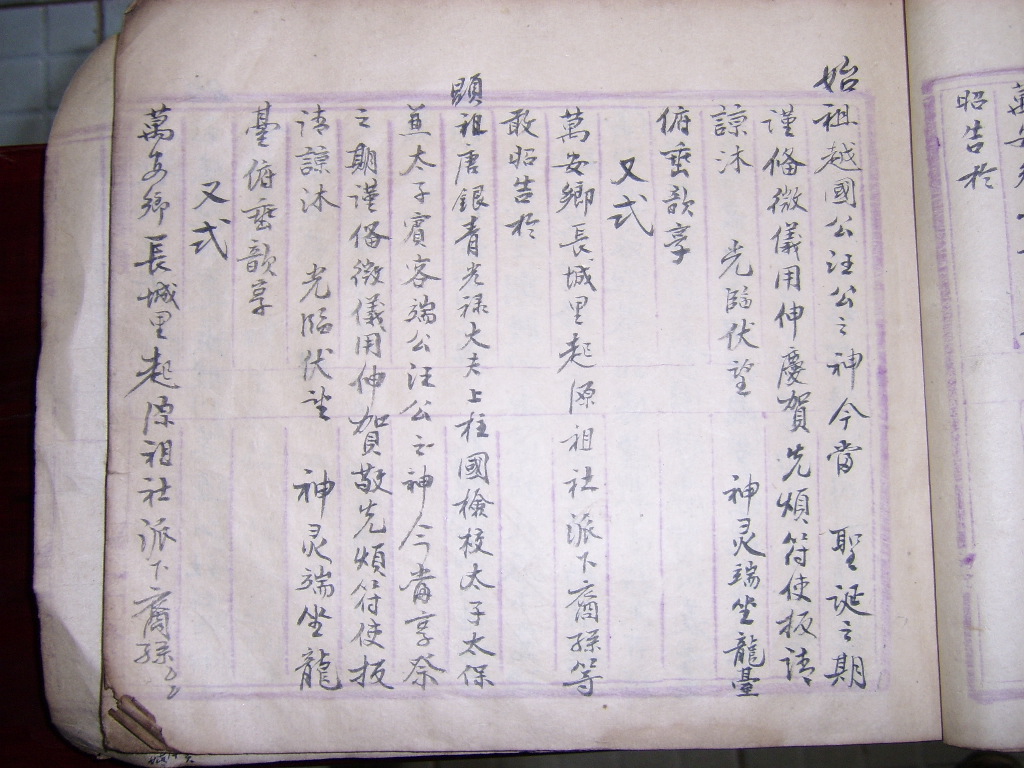 昭告於
始祖越國公汪公之神今當　聖誕之期
謹俻微儀用伸慶賀先煩符使扳請
諒沐　光臨伏望　神灵端坐龍臺
俯垂歆享
又式
萬安鄉長城里起源祖社派下裔孫等
敢昭告於
顕祖唐銀青光禄大夫上柱國檢校太子太保
兼太子賓客端公汪公之神今當享祭
之期謹俻微儀用伸賀敬先煩符使扳
请諒沐　光臨伏望　神灵端坐龍
臺俯垂歆享
又式
萬安鄉長城里起源祖社派下裔孫